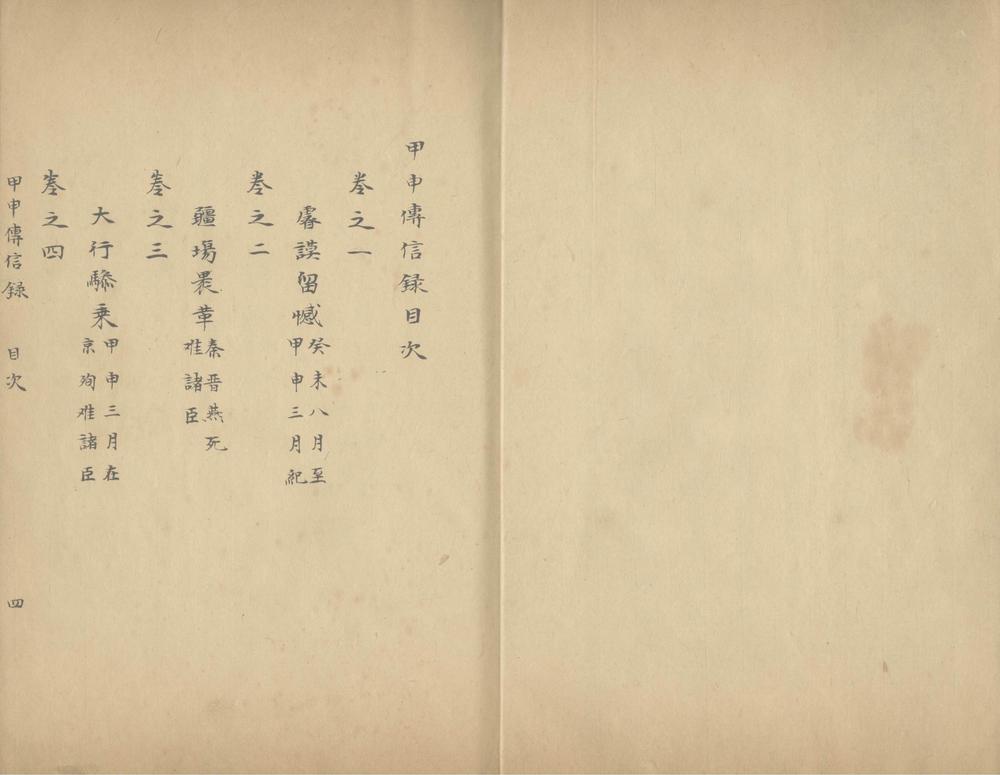 甲申傳信録目次
卷之一
睿謨留憾 癸未八月至
甲申三月紀
卷之二
疆場裹革 秦晋燕死
难諸臣
卷之三
大行驂乗 甲申三月在
京殉难諸臣
卷之四
甲申傳信録 目次 四